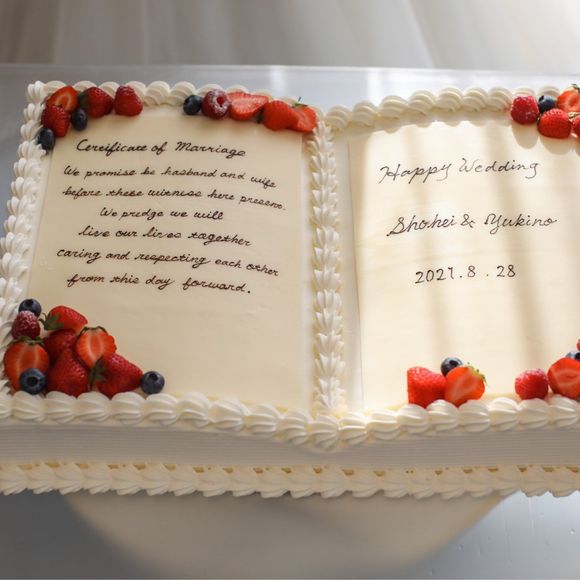 Cereficace of Marriage
We promise be husband and wife
before these witness here present.
We predge we will
live our lives together
caring and respecting each other
from this day forward.
Happy Wedding
Shohei & Yukino
2021.8.28